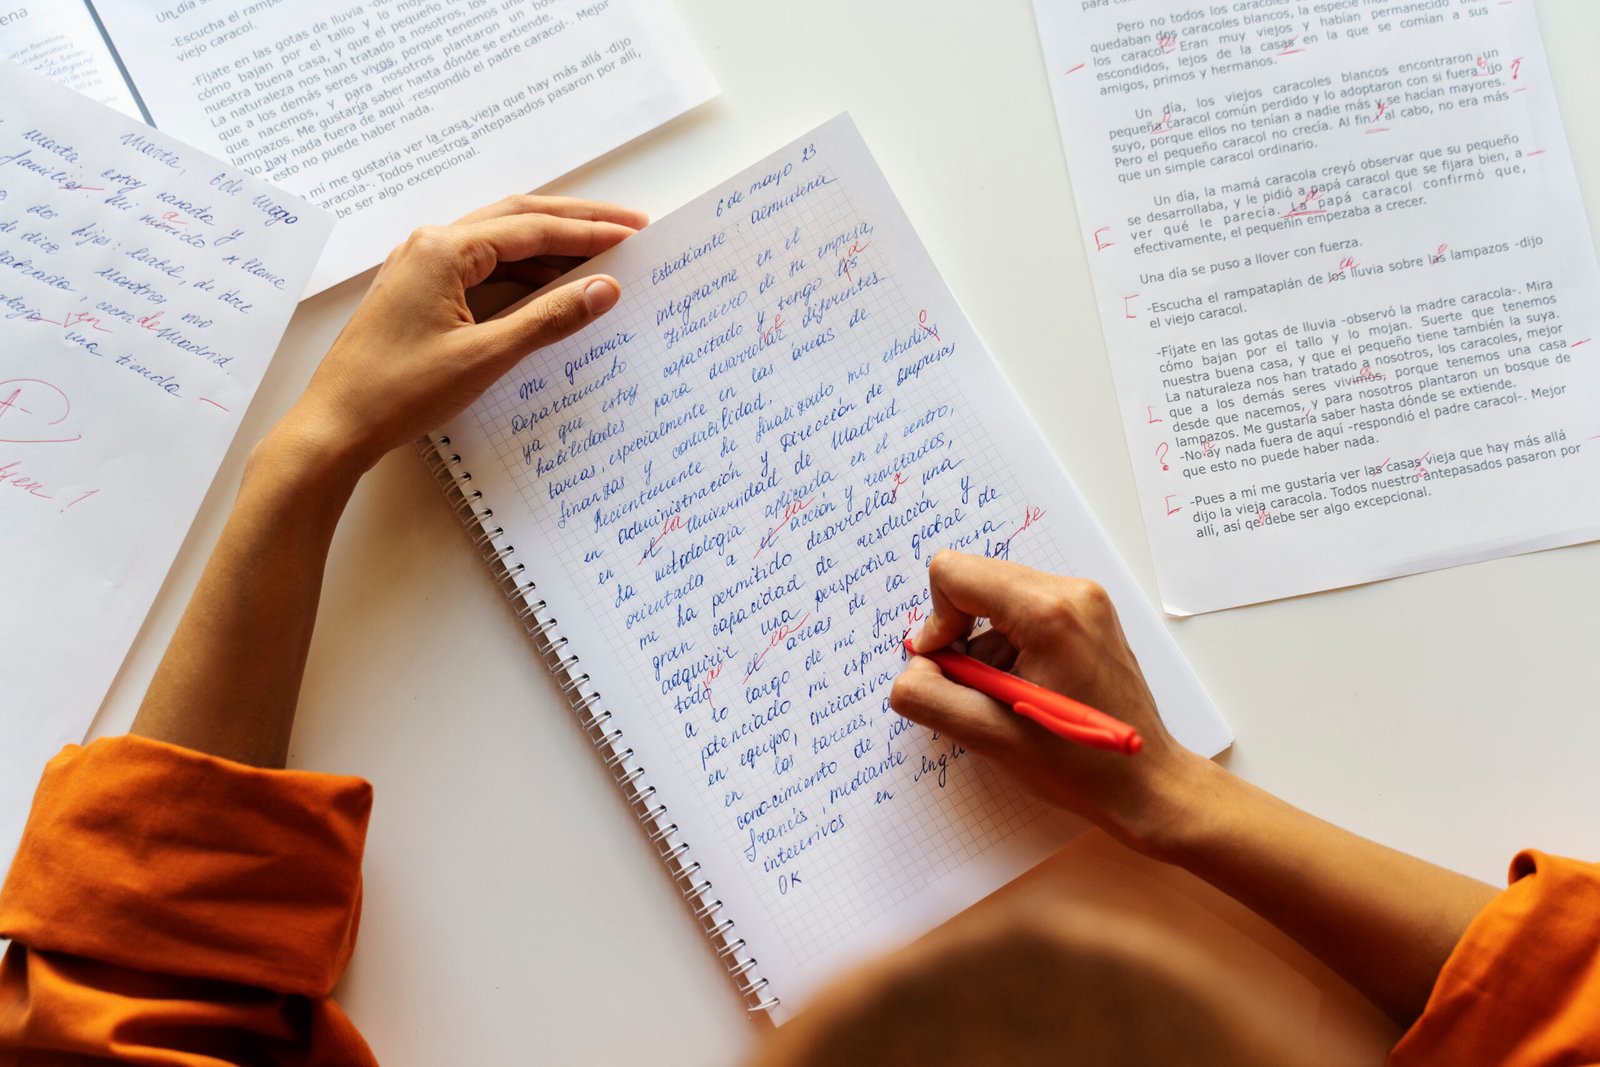 Marta, 6 de Mayo
marta. estoy casada y
familia. Mi marido se llama
a
dos hijos: Isabel, de doce
de diez
nosotros vivo
cerca de Madrid.
en
una tienda
A-
Un día se
-Escucha el rampata
viejo caracol.
-Fíjate en las gotas de lluvia -o
cómo bajan por el tallo y lo moja
nuestra buena casa, y que el pequeño t
La naturaleza nos han tratado a nosotros, los
que a los demás seres vivos, porque tenemos una
que nacemos, y para nosotros plantaron un bosq
lampazos. Me gustaría saber hasta dónde se extiende.
-No hay nada fuera de aquí -respondió el padre caracol-. Mejor
esto no puede haber nada.
a mí me gustaría ver la casa vieja que hay más allá -dijo
caracola-. Todos nuestros antepasados pasaron por allí,
be ser algo excepcional.
6 de mayo 23
Estudiante: Almudena
Me gustaria integrarme en el
Departamento Financiero de su empresa,
ya que estoy capacitado y tengo los
a
habilidades para desarrollar diferentes
tareas, especialmente en las áreas de
finanzas y contabilidad.
Recientemente he finalizado mis estudios
o
en administración y Dirección de Empresas
en el Universidad de Madrid.
la
La metodología aplicada en el centro,
orientado a el acción y resultados,
la
me ha permitido desarrollar una
r
gran capacidad de resolución y
adquirir una perspectiva global de
todo el areas de la empresa.
as la
a lo largo de mi formac
he
potenciado mi espiritu
u
en equipo, iniciativa
en las tareas, a
conocimiento de idi
francés, mediante
intensivos en Inglé
OK
para con
Pero no todos los caracoles
quedaban dos caracoles blancos, la especie más
los caracol. Eran muy viejos y habían permanecido bien
es
escondidos, lejos de la casas en la que se comían a sus
amigos, primos y hermanos.
Un día, los viejos caracoles blancos encontraron un
pequeña caracol común perdido y lo adoptaron con si fuera ijo ?
suyo, porque ellos no tenian a nadie más y se hacían mayores.
Pero el pequeño caracol no crecía. Al fin y al cabo, no era más
que un simple caracol ordinario.
Un día, la mamá caracola creyó observar que su pequeño
se desarrollaba, y le pidió a papá caracol que se fijara bien, a
ver qué le parecía. La papá caracol confirmó que,
efectivamente, el pequeñin empezaba a crecer.
Una día se puso a llover con fuerza.
-Escucha el rampataplán de los lluvia sobre las lampazos -dijo
la
el viejo caracol.
-Fíjate en las gotas de lluvia -observó la madre caracola-. Mira
cómo bajan por el tallo y lo mojan. Suerte que tenemos
nuestra buena casa, y que el pequeño tiene también la suya.
La naturaleza nos han tratado a nosotros, los caracoles, mejor
que a los demás seres vivimos, porque tenemos una casa
desde que nacemos, y para nosotros plantaron un bosque de
lampazos. Me gustaría saber hasta dónde se extiende.
? -No ay nada fuera de aquí -respondió el padre caracol-. Mejor
que esto no puede haber nada.
-Pues a mí me gustaría ver las casas vieja que hay más allá
dijo la vieja caracola. Todos nuestro antepasados pasaron por
allí, así qe debe ser algo excepcional.